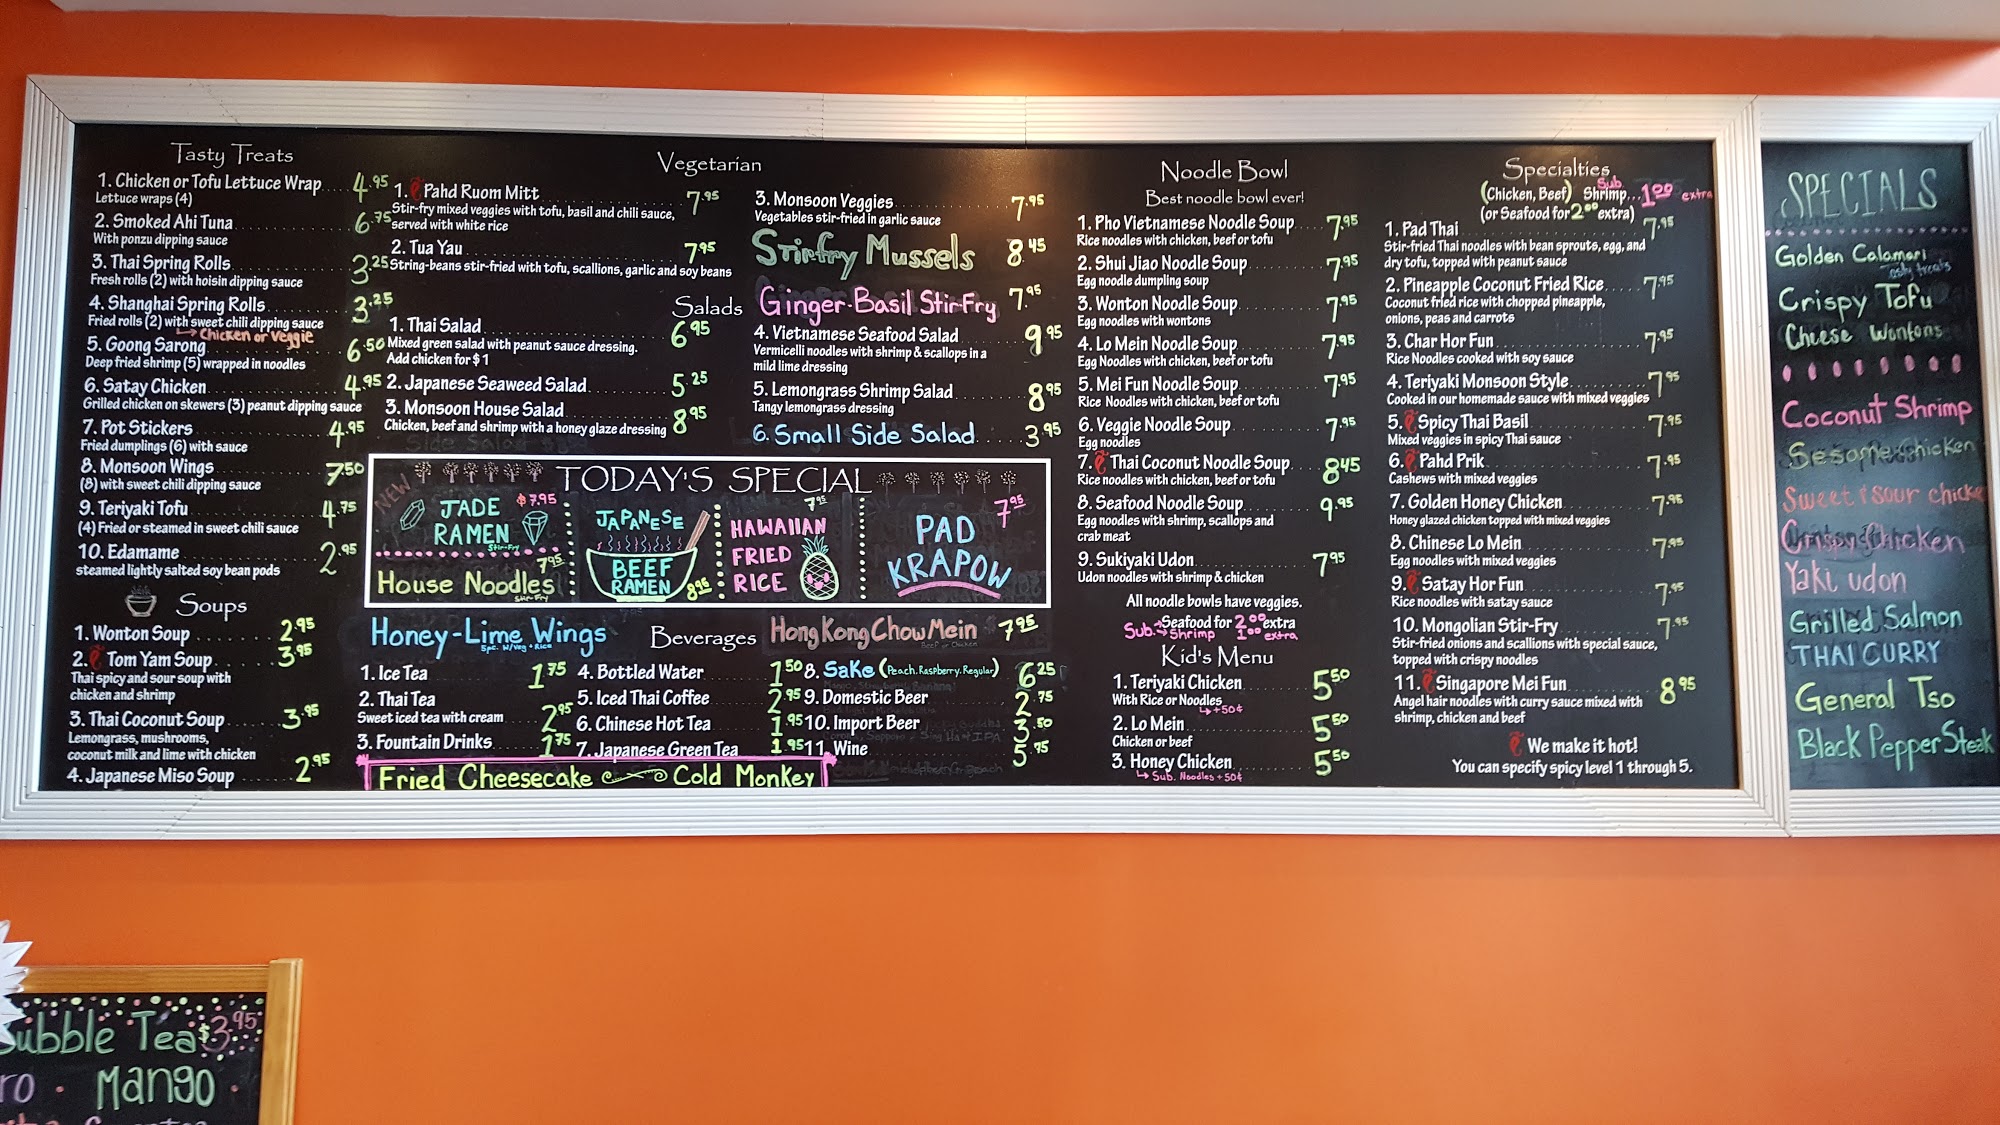 Tasty Treats
1. Chicken or Tofu Lettuce Wrap 4.95
Lettuce wraps (4)
2. Smoked Ahi Tuna 6.75
With ponzu dipping sauce
3. Thai Spring Rolls 3.25
Fresh rolls (2) with hoisin dipping sauce
4. Shanghai Spring Rolls 3.25
Fried rolls (2) with sweet chili dipping sauce
Chicken or Veggie
5. Goong Sarong 6.50
Deep fried shrimp (5) wrapped in noodles
6. Satay Chicken 4.95
Grilled chicken on skewers (3) peanut dipping sauce
7. Pot Stickers 4.95
Fried dumplings (6) with sauce
8. Monsoon Wings 7.50
(8) with sweet chili dipping sauce
9. Teriyaki Tofu 4.75
(4) Fried or steamed in sweet chili sauce
10. Edamame 2.95
steamed lightly salted soy bean pods
Soups
1. Wonton Soup 2.95
2. Tom Yam Soup 3.95
Thai spicy and sour soup with
chicken and shrimp
3. Thai Coconut Soup 3.95
Lemongrass, mushrooms,
coconut milk and lime with chicken
4. Japanese Miso Soup 2.95
Vegetarian
1. Pahd Ruom Mitt 7.95
Stir-fry mixed veggies with tofu, basil and chili sauce,
served with white rice
2. Tua Yau 7.95
String-beans stir-fried with tofu, scallions, garlic and soy beans
3. Monsoon Veggies 7.95
Vegetables stir-fried in garlic sauce
Stirfry Mussels 8.45
Ginger-Basil Stir-Fry 7.95
Salads
1. Thai Salad 6.95
Mixed green salad with peanut sauce dressing.
Add chicken for $1
2. Japanese Seaweed Salad 5.25
3. Monsoon House Salad 8.95
Chicken, beef and shrimp with a honey glaze dressing
4. Vietnamese Seafood Salad 9.95
Vermicelli noodles with shrimp & scallops in a
mild lime dressing
5. Lemongrass Shrimp Salad 8.95
Tangy lemongrass dressing
6. Small Side Salad 3.95
TODAY'S SPECIAL
NEW
JADE $7.95
RAMEN
Stir-Fry
House Noodles 7.95
Stir-Fry
JAPANESE
BEEF
RAMEN 8.95
7.95
HAWAIIAN
FRIED
RICE
PAD 7.95
KRAPOW
Honey-Lime Wings
5pc. w/Veg + Rice
Hong Kong Chow Mein 7.95
Beef or Chicken
Beverages
1. Ice Tea 1.75
2. Thai Tea
Sweet iced tea with cream 2.95
3. Fountain Drinks 1.75
4. Bottled Water 1.50
5. Iced Thai Coffee 2.95
6. Chinese Hot Tea 1.95
7. Japanese Green Tea 1.95
8. Sake (Peach. Raspberry. Regular) 6.25
9. Domestic Beer 2.75
10. Import Beer 3.50
11. Wine 5.95
Fried Cheesecake Cold Monkey
Noodle Bowl
Best noodle bowl ever!
1. Pho Vietnamese Noodle Soup 7.95
Rice noodles with chicken, beef or tofu
2. Shui Jiao Noodle Soup 7.95
Egg noodle dumpling soup
3. Wonton Noodle Soup 7.95
Egg noodles with wontons
4. Lo Mein Noodle Soup 7.95
Egg Noodles with chicken, beef or tofu
5. Mei Fun Noodle Soup 7.95
Rice Noodles with chicken, beef or tofu
6. Veggie Noodle Soup 7.95
Egg noodles
7. Thai Coconut Noodle Soup 8.45
Rice noodles with chicken, beef or tofu
8. Seafood Noodle Soup 9.95
Egg noodles with shrimp, scallops and
crab meat
9. Sukiyaki Udon 7.95
Udon noodles with shrimp & chicken
All noodle bowls have veggies.
Seafood for 2.00 extra
Sub. Shrimp 1.00 extra
Kid's Menu
1. Teriyaki Chicken 5.50
With Rice or Noodles
+50¢
2. Lo Mein 5.50
Chicken or beef
3. Honey Chicken 5.50
Sub. Noodles +50¢
Specialties
(Chicken, Beef) Sub. Shrimp... 1.00 extra
(or Seafood for 2.00 extra)
1. Pad Thai 7.95
Stir-fried Thai noodles with bean sprouts, egg, and
dry tofu, topped with peanut sauce
2. Pineapple Coconut Fried Rice 7.95
Coconut fried rice with chopped pineapple,
onions, peas and carrots
3. Char Hor Fun 7.95
Rice Noodles cooked with soy sauce
4. Teriyaki Monsoon Style 7.95
Cooked in our homemade sauce with mixed veggies
5. Spicy Thai Basil 7.95
Mixed veggies in spicy Thai sauce
6. Pahd Prik 7.95
Cashews with mixed veggies
7. Golden Honey Chicken 7.95
Honey glazed chicken topped with mixed veggies
8. Chinese Lo Mein 7.95
Egg noodles with mixed veggies
9. Satay Hor Fun 7.95
Rice noodles with satay sauce
10. Mongolian Stir-Fry 7.95
Stir-fried onions and scallions with special sauce,
topped with crispy noodles
11. Singapore Mei Fun 8.95
Angel hair noodles with curry sauce mixed with
shrimp, chicken and beef
We make it hot!
You can specify spicy level 1 through 5.
SPECIALS
Golden Calamari
Tasty treats
Crispy Tofu
Cheese Wontons
Coconut Shrimp
Sesame Chicken
Sweet & Sour chicke
Crispy Chicken
Yaki udon
Grilled Salmon
THAI CURRY
General Tso
Black Pepper Steak
Bubble Tea $3.95
ro · Mango ·